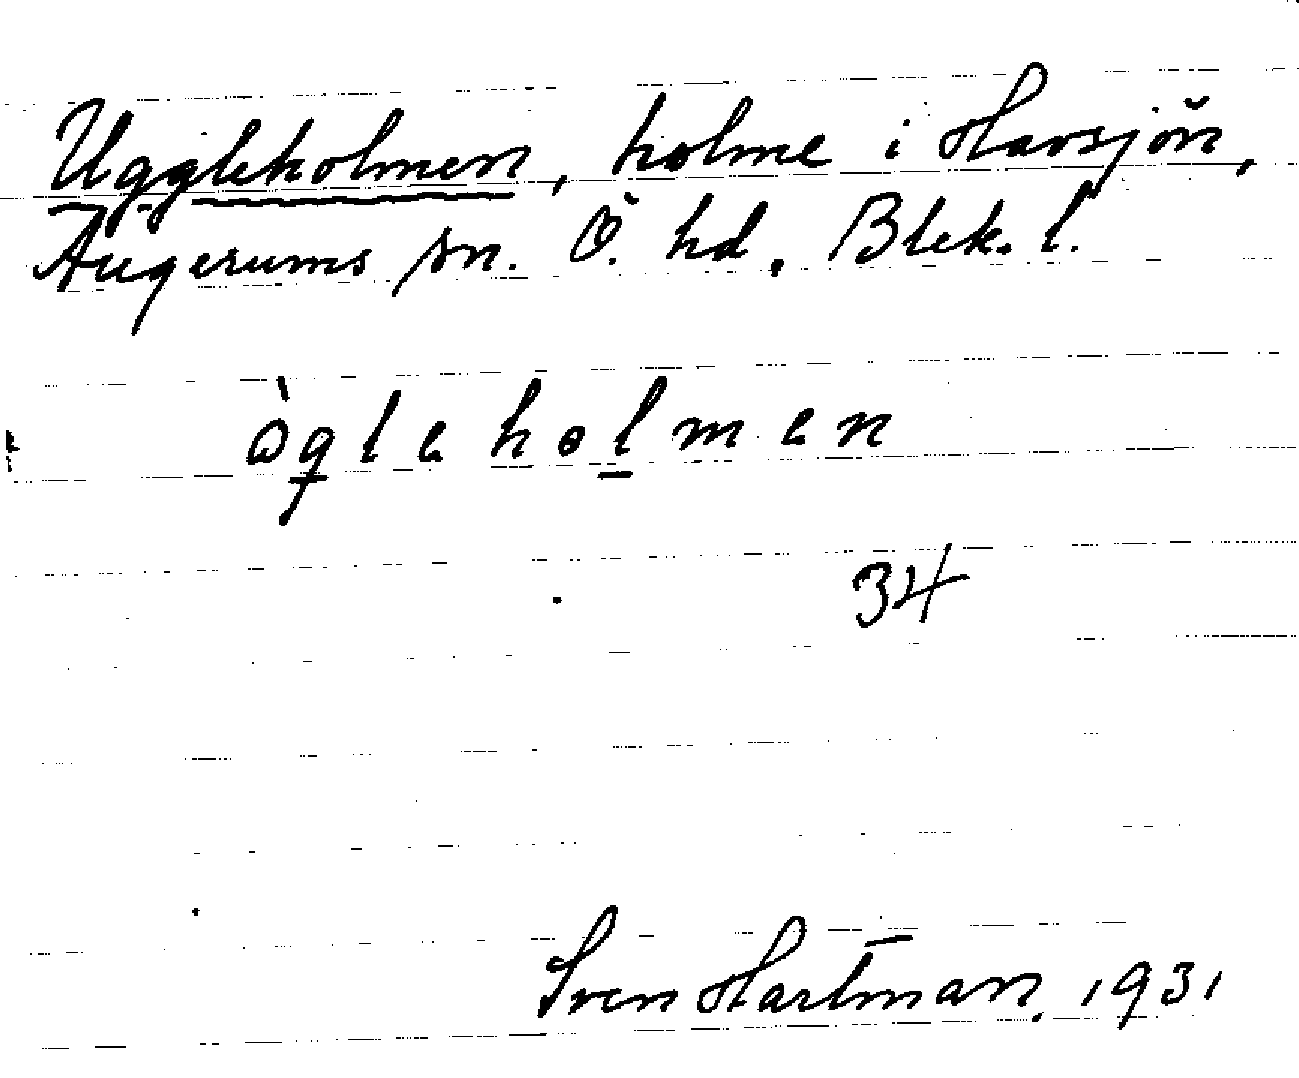 Uggleholmen, holme i Havsjön,
Augerums sn. Ö. hd. Blek. l.
ògleholmen
34
Sven Hartman. 1931